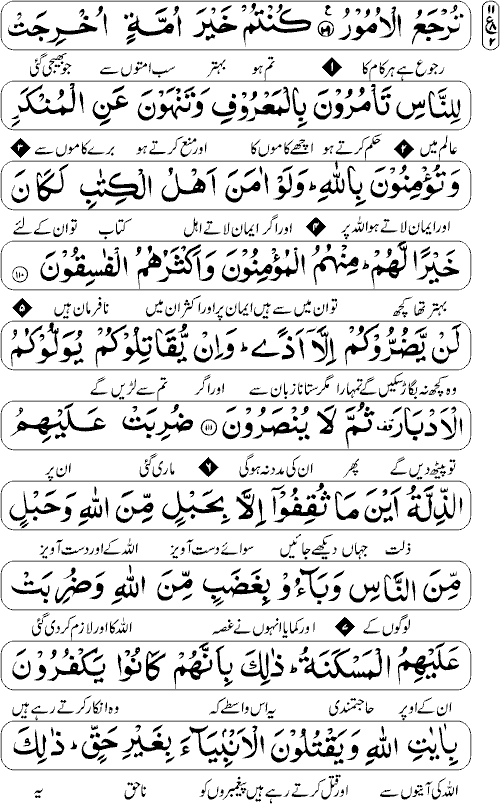 تُرْجَعُ الْاُمُوْرُ ۝۱۰۹ كُنْتُمْ خَيْرَ اُمَّةٍ اُخْرِجَتْ
رجوع ہے ہر کام کا ۱ تم ہو بہتر سب امتوں سے جو بھیجی گئی
لِلنَّاسِ تَاْمُرُوْنَ بِالْمَعْرُوْفِ وَتَنْهَوْنَ عَنِ الْمُنْكَرِ
عالم میں ۲ حکم کرتے ہو اچھے کاموں کا اور منع کرتے ہو برے کاموں سے ۳
وَتُؤْمِنُوْنَ بِاللّٰهِ ؕ وَلَوْ اٰمَنَ اَهْلُ الْكِتٰبِ لَكَانَ
اور ایمان لاتے ہو اللہ پر ۴ اور اگر ایمان لاتے اہل کتاب تو ان کے لئے
خَيْرًا لَّهُمْ ؕ مِنْهُمُ الْمُؤْمِنُوْنَ وَاَكْثَرُهُمُ الْفٰسِقُوْنَ ۝۱۱۰
بہتر تھا کچھ تو ان میں سے ہیں ایمان پر اور اکثر ان میں نافرمان ہیں ۵
لَنْ يَّضُرُّوْكُمْ اِلَّاۤ اَذًى ؕ وَاِنْ يُّقَاتِلُوْكُمْ يُوَلُّوْكُمُ
وہ کچھ نہ بگاڑ سکیں گے تمہارا مگر ستانا زبان سے اور اگر تم سے لڑیں گے
الْاَدْبَارَ ۟ ثُمَّ لَا يُنْصَرُوْنَ ۝۱۱۱ ضُرِبَتْ عَلَيْهِمُ
تو پیٹھ دیں گے پھر ان کی مدد نہ ہوگی ۶ ماری گئی ان پر
الذِّلَّةُ اَيْنَ مَا ثُقِفُوْۤا اِلَّا بِحَبْلٍ مِّنَ اللّٰهِ وَحَبْلٍ
ذلت جہاں دیکھے جائیں سوائے دست آویز اللہ کے اور دست آویز
مِّنَ النَّاسِ وَبَآءُوْ بِغَضَبٍ مِّنَ اللّٰهِ وَضُرِبَتْ
لوگوں کے ۷ اور کمایا انہوں نے غصہ اللہ کا اور لازم کر دی گئی
عَلَيْهِمُ الْمَسْكَنَةُ ؕ ذٰلِكَ بِاَنَّهُمْ كَانُوْا يَكْفُرُوْنَ
ان کے اوپر حاجتمندی یہ اس واسطے کہ وہ انکار کرتے رہے ہیں
بِاٰيٰتِ اللّٰهِ وَيَقْتُلُوْنَ الْاَنْۢبِيَآءَ بِغَيْرِ حَقٍّ ؕ ذٰلِكَ
اللہ کی آیتوں سے اور قتل کرتے رہے ہیں پیغمبروں کو ناحق یہ